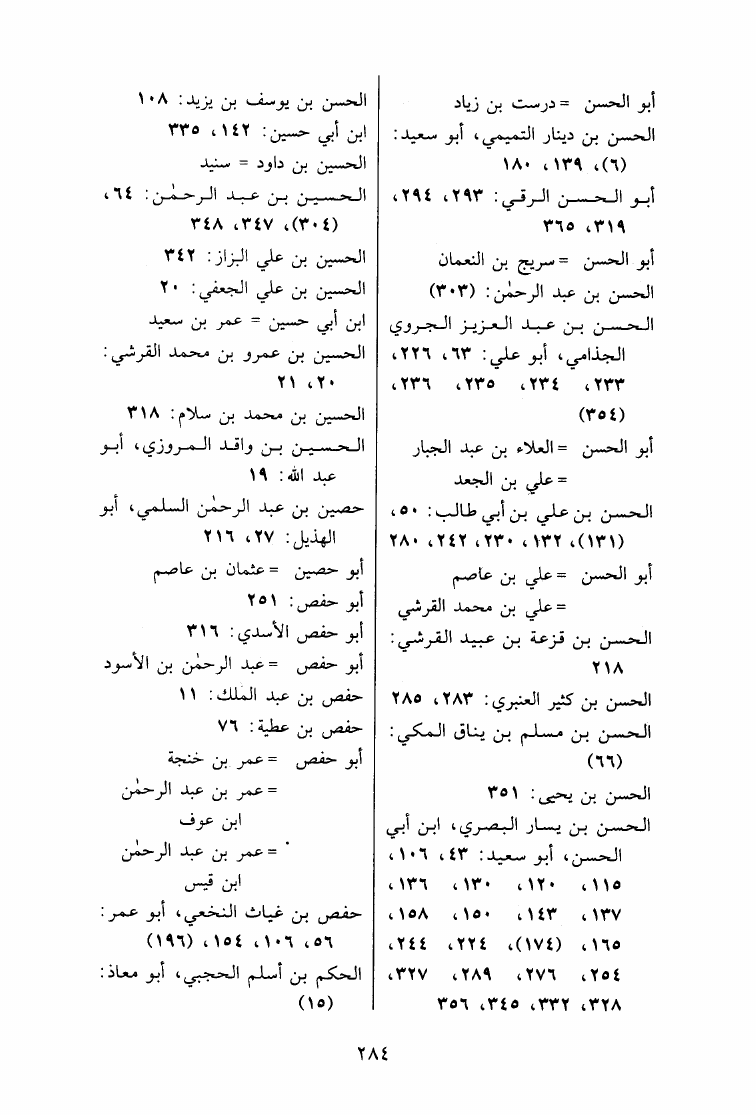 أبو الحسن = درست بن زياد
الحسن بن دينار التميمي، أبو سعيد:
(٦)، ١٣٩، ١٨٠
أبو الحسن الرقي: ٢٩٣، ٢٩٤،
٣١٩، ٣٦٥
أبو الحسن = سريج بن النعمان
الحسن بن عبد الرحمٰن: (٣٠٣)
الحسن بن عبد العزيز الجروي
الجذامي، أبو علي: ٦٣، ٢٢٦،
٢٣٣، ٢٣٤، ٢٣٥، ٢٣٦،
(٣٥٤)
أبو الحسن = العلاء بن عبد الجبار
= علي بن الجعد
الحسن بن علي بن أبي طالب: ٥٠،
(١٣١)، ١٣٢، ٢٣٠، ٢٤٢، ٢٨٠
أبو الحسن = علي بن عاصم
= علي بن محمد القرشي
الحسن بن قزعة بن عبيد القرشي:
٢١٨
الحسن بن كثير العنبري: ٢٨٣، ٢٨٥
الحسن بن مسلم بن يناق المكي:
(٦٦)
الحسن بن يحيى: ٣٥١
الحسن بن يسار البصري، ابن أبي
الحسن، أبو سعيد: ٤٣، ١٠٦،
١١٥، ١٢٠، ١٣٠، ١٣٦،
١٣٧، ١٤٣، ١٥٠، ١٥٨،
١٦٥، (١٧٤)، ٢٢٤، ٢٤٤،
٢٥٤، ٢٧٦، ٢٨٩، ٣٢٧،
٣٢٨، ٣٣٢، ٣٤٥، ٣٥٦
الحسن بن يوسف بن يزيد: ١٠٨
ابن أبي حسين: ١٤٢، ٣٣٥
الحسين بن داود = سنيد
الحسين بن عبد الرحمٰن: ٦٤،
(٣٠٤)، ٣٤٧، ٣٤٨
الحسين بن علي البزاز: ٣٤٢
الحسين بن علي الجعفي: ٢٠
ابن أبي حسين = عمر بن سعيد
الحسين بن عمرو بن محمد القرشي:
٢٠، ٢١
الحسين بن محمد بن سلام: ٣١٨
الحسين بن واقد المروزي، أبو
عبد الله: ١٩
حصين بن عبد الرحمٰن السلمي، أبو
الهذيل: ٢٧، ٢١٦
أبو حصين = عثمان بن عاصم
أبو حفص: ٢٥١
أبو حفص الأسدي: ٣١٦
أبو حفص = عبد الرحمٰن بن الأسود
حفص بن عبد الملك: ١١
حفص بن عطية: ٧٦
أبو حفص = عمر بن خنجة
= عمر بن عبد الرحمٰن
ابن عوف
= عمر بن عبد الرحمٰن
ابن قيس
حفص بن غياث النخعي، أبو عمر:
٥٦، ١٠٦، ١٥٤، (١٩٦)
الحكم بن أسلم الحجبي، أبو معاذ:
(١٥)
٢٨٤